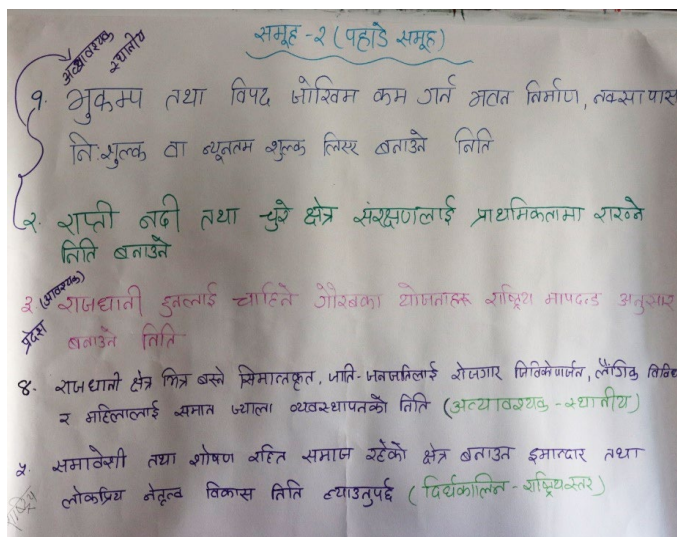 समूह -२ (पहाडे समूह)
अत्यावश्यक
स्थानीय
१. भुकम्प तथा विपद जोखिम कम गर्न भवन निर्माण, नक्सा पास
नि:शुल्क वा न्यूनतम शुल्क लिएर बनाउने निति
२. राप्ती नदी तथा चुरे क्षेत्र संरक्षणलाई प्राथमिकतामा राख्ने
निति बनाउने
(आवश्यक)
प्रदेश
३. राजधानी हुनलाई चाहिने गौरबका योजनाहरू राष्ट्रिय मापदण्ड अनुसार
बनाउने निति
४. राजधानी क्षेत्र भित्र बस्ने सिमान्तकृत, जाति-जनजातिलाई रोजगार जिविकोपार्जन, लैंगिक
र महिलालाई समान ज्याला व्यवस्थापनको निति (अत्यावश्यक - स्थानीय)
५. समावेशी तथा शोषण रहित समाज रहेको क्षेत्र बनाउन इमान्दार तथा
लोकप्रिय नेतृत्व विकास निति ल्याउनुपर्छ (दिर्घकालिन - राष्ट्रियस्तर)